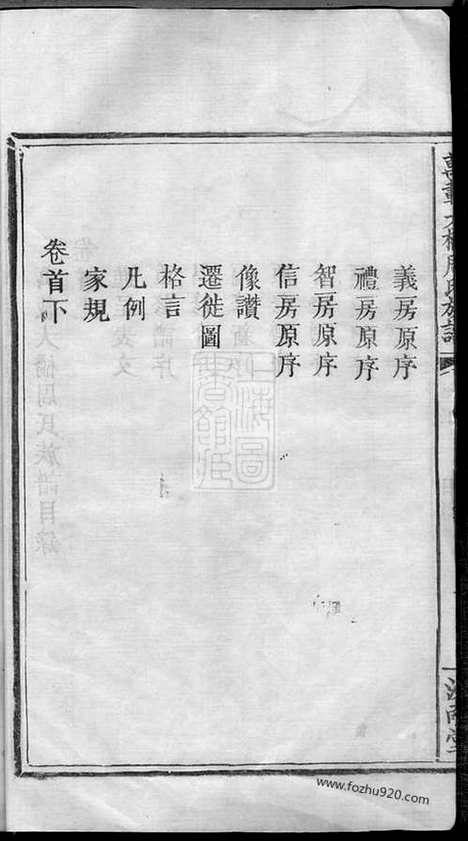 義房原序
禮房原序
智房原序
信房原序
像讚
遷徙圖
格言
凡例
家規
卷首下
上海圖書館藏
www.fozhu920.com